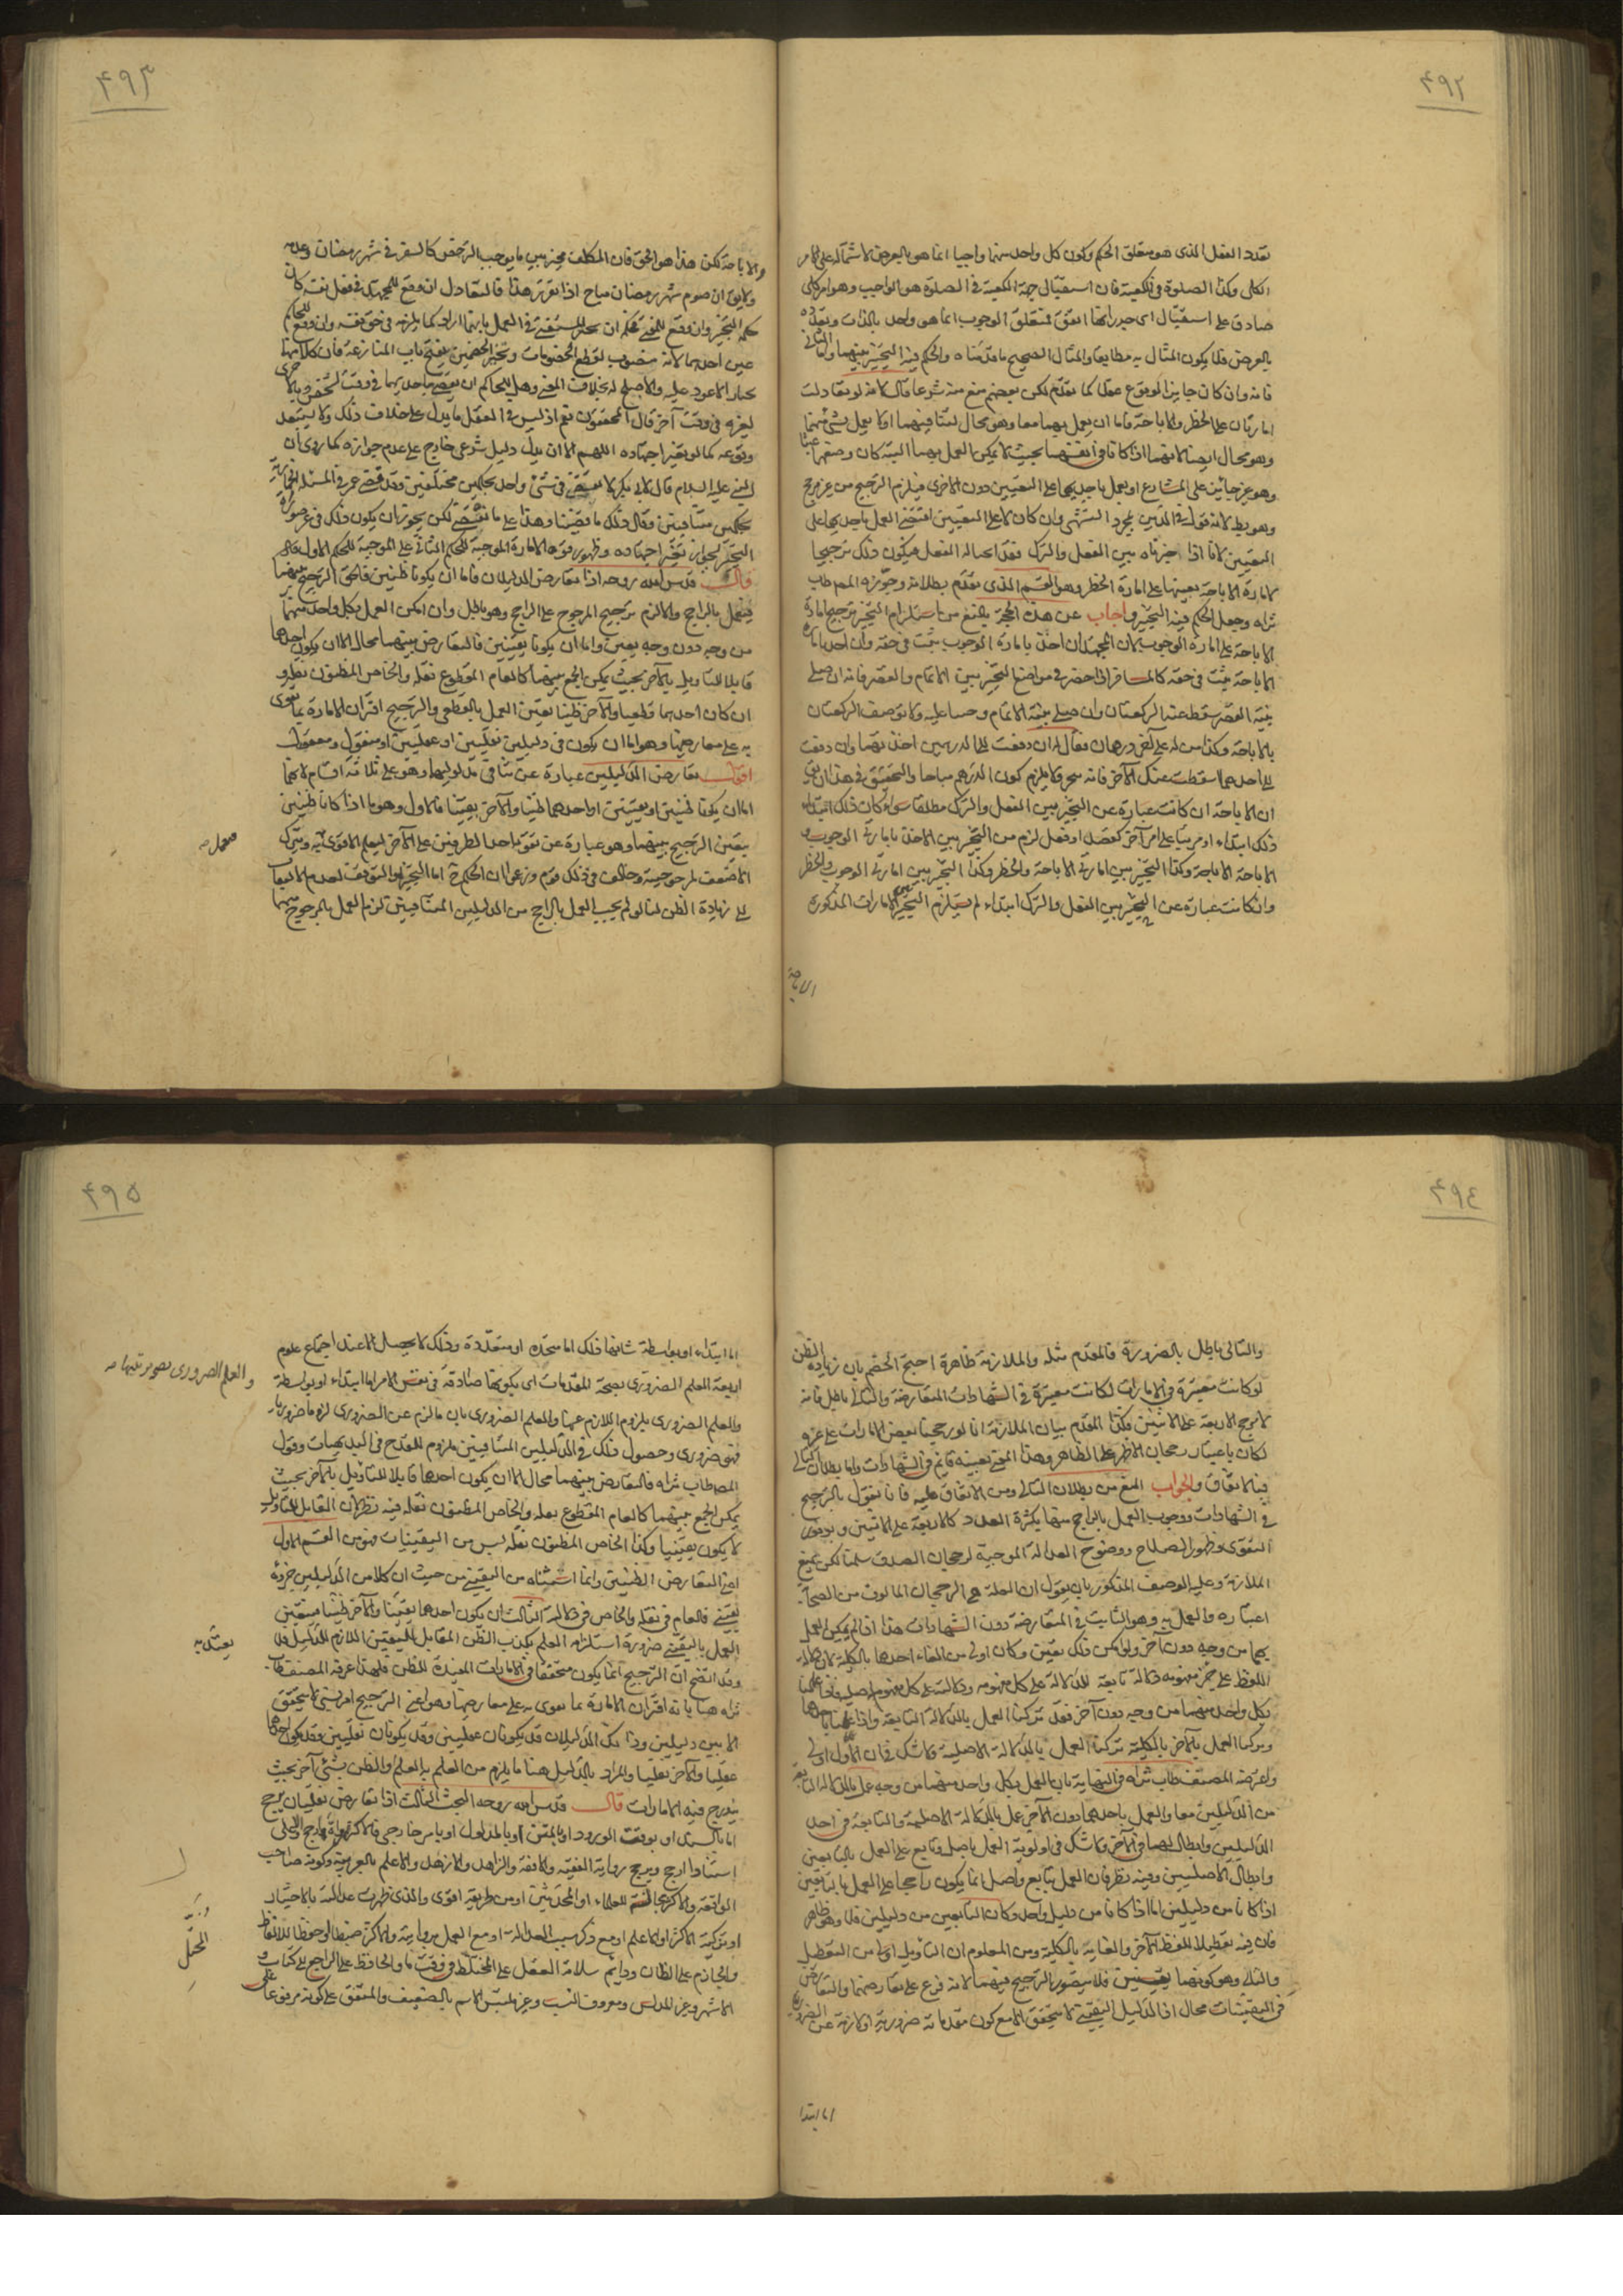 ۴۹۲
تعدد الفعل الذى هو متعلق الحكم وكون كل واحد منهما واجبا انما هو بالعرض لاشتماله على الامر
الكلى وكذا الصلوة فى الكعبة فان استقبال جهة الكعبة فى الصلوة هو الواجب وهو امر كلى
صادق على استقبال اى جدرانها اتفق فمتعلق الوجوب انما هو واحد بالذات وتعدده
بالعرض فلا يكون المثال به مطابقا والمثال الصحيح ما قدمناه والحكم فيه التخيير بينهما والثانى
فانه وان كان جايز الوقوع عقلا كما تقدم لكن بعضهم منع منه شرعا قال لانه لو تعادلت
امارتان على الحظر والاباحة فاما ان يعمل بهما معا وهو محال لتنافيهما او لا يعمل بشئ منهما
وهو محال ايضا لانهما اذا كانا فى انفسهما بحيث لا يمكن العمل بهما البتة كان وضعهما عبثا
وهو غير جائز على الشارع او يعمل باحديهما على التعيين دون الاخرى فيلزم الترجيح من غير مرجح
وهو بط لانه قول فى الدين بمجرد التشهى وان كان لا على التعيين اقتضى العمل باحديهما على
التعيين لانا اذا خيرناه بين الفعل والترك فقد ابحنا له الفعل فيكون ذلك ترجيحا
لامارة الاباحة بعينها على امارة الحظر وهو القسم الذى تقدم بطلانه وجوزه المص طاب
ثراه وجعل الحكم فيه التخيير واجاب عن هذه الحجة بالمنع من استلزام التخيير ترجيح امارة
الاباحة على امارة الوجوب لان المجتهد ان اخذ بامارة الوجوب ثبت فى حقه وان اخذ بامارة
الاباحة ثبت فى حقه كالمسافر اذا حضر فى مواضع التخيير بين الاتمام والقصر فانه ان صلى
بنية القصر سقط عنه الركعتان وان صلى بنية الاتمام وجبا عليه ولا توصف الركعتان
بالاباحة وكذا من له على آخر درهمان فقال له ان دفعت الى الدرهمين اخذتهما وان دفعت
الى احدهما اسقطت عنك الآخر فانه مخير ولا يلزم كون الدرهم مباحا والتحقيق فى هذا ان يق
ان الاباحة ان كانت عبارة عن التخيير بين الفعل والترك مطلقا سواء كان ذلك
ذلك ابتداء او مرتبا على امر آخر كقصد او فعل لزم من التخيير بين الاخذ بامارتى الوجوب و
الاباحة الاباحة وكذا التخيير بين امارتى الاباحة والحظر وكذا التخيير بين امارتى الوجوب والحظر
وان كانت عبارة عن التخيير بين الفعل والترك ابتداء لم يستلزم التخيير بين الامارات المذكورة
الاباحة
۴۹۳
والاباحة لكن هذا هو الحق فان المكلف مخير بين ما يوجب الترخص كالسفر فى شهر رمضان وعدمه
ولا يق ان صوم شهر رمضان مباح اذا تقرر هذا فالتعادل ان وقع للمجتهد فى فعل نفسه كان
حكمه التخيير وان وقع للمفتى فحكمه ان يخير المستفتى فى العمل بايتهما اراد كما يلزمه فى حق نفسه وان وقع للحاكم
عين احدهما لانه منصوب لقطع الخصومات وتخيير الخصمين يفتح باب المنازعة فان كلا منهما
يختار الاعود عليه والاصلح له بخلاف المفتى وهل للحاكم ان يقضى باحديهما فى وقت لشخص وبالاخرى
لغيره فى وقت آخر قال المحققون نعم اذ ليس فى العقل ما يدل على خلاف ذلك ولا يستبعد
وقوعه كما لو تغير اجتهاده اللهم الا ان يدل دليل شرعى خارج على عدم جوازه كما روى ان
النبى عليه السلام قال لابى بكر لا تقضى فى شئ واحد بحكمين مختلفين وقد قضى عمر فى المسئلة الحمارية
بحكمين متنافيين وقال ذلك ما قضينا وهذا على ما نقضى لكن يجوز ان يكون ذلك فى غير صورة
التخيير لجواز تغير اجتهاده وظهور قوة الامارة الموجبة للحكم الثانى على الموجبة للحكم الاول قال
قال قدس الله روحه اذا تعارض الدليلان فاما ان يكونا ظنيين فالحق الترجيح بينهما
فيعمل بالراجح والا لزم ترجيح المرجوح على الراجح وهو باطل وان امكن العمل بكل واحد منهما
من وجه دون وجه تعين واما ان يكونا يقينيين فالتعارض بينهما محال الا ان يكون احدهما
قابلا للتاويل بالآخر بحيث يمكن الجمع بينهما كالعام المقطوع نقله والخاص المظنون نقله و
ان كان احدهما قطعيا والآخر ظنيا تعين العمل بالقطعى والترجيح اقتران الامارة بما تقوى
به على معارضها وهو اما ان يكون فى دليلين نقليين او عقليين او منقول ومعقول
اقول تعارض الدليلين عبارة عن تنافى مدلوليهما وهو على ثلاثة اقسام لانهما
اما ان يكونا ظنيين او يقينيين او احدهما ظنيا والآخر يقينيا فالاول وهو ما اذا كانا ظنيين
يتعين الترجيح بينهما وهو عبارة عن تقوية احد الطرفين على الآخر ليعلم الاقوى فيه ويترك
الاضعف لمرجوحيته وخالف فى ذلك قوم وزعموا ان الحكم ح اما التخيير او التوقف لعدم الالتفات
الى زيادة الظن لنا لو لم يجب العمل بالراجح من الدليلين المتنافيين لزم العمل بالمرجوح منهما
۴۹۴
والتالى باطل بالضرورة فالمقدم مثله والملازمة ظاهرة احتج الخصم بان زيادة الظن
لو كانت معتبرة فى الامارات لكانت معتبرة فى الشهادات المتعارضة والتالى باطل فانه
لا يرجح الاربعة على الاثنين فكذا المقدم بيان الملازمة انا لو رجحنا بعض الامارات على غيره
لكان باعتبار رجحان الاظهر على الظاهر وهذا المعنى بعينه قائم فى الشهادات واما بطلان التالى
فبالاتفاق والجواب المنع من بطلان التالى ومن الاتفاق عليه فانا نقول بالترجيح
فى الشهادات ووجوب العمل بالراجح منها بكثرة العدد كالاربعة على الاثنين وبوفور
التقوى وظهور الصلاح ووضوح العدالة الموجبة لرجحان الصدق سلمنا لكن نمنع
الملازمة وعلية الوصف المذكور بان يقول ان العلة هى الرجحان المالوف من الصحابة
اعتباره والعمل به وهو الثابت فى المتعارضة دون الشهادات هذا اذا لم يمكن العمل
بهما من وجه دون آخر ولو امكن ذلك تعين وكان اولى من الغاء احدهما بالكلية لان دلالة
اللفظ على جزء مفهومه دلالة تابعة للدلالة على كل مفهومه ودلالته على كل مفهومه اصلية فاذا عملنا
بكل واحد منهما من وجه دون آخر فقد تركنا العمل بالدلالة التابعة واذا عملنا باحدهما
وتركنا العمل بالآخر بالكلية تركنا العمل بالدلالة الاصلية ولا شك فى ان الاول اولى
واعترضه المصنف طاب ثراه فى النهاية بان العمل بكل واحد منهما من وجه عمل بالدلالة التابعة
من الدليلين معا والعمل باحدهما دون الآخر عمل بالدلالة الاصلية والتابعة فى احد
الدليلين وابطال لهما فى الآخر ولا شك فى اولوية العمل باصل وتابع على العمل بالتابعين
وابطال الاصليين وفيه نظر فان العمل بتابع واصل انما يكون راجحا على العمل بتابعين
اذا كانا من دليلين اما اذا كانا من دليل واحد وكان التابعين من دليلين فلا وهو ظاهر
فان فيه تعطيلا للفظ الآخر والغاية بالكلية ومن المعلوم ان التاويل اولى من التعطيل
والثانى وهو كونهما يقينيين فلا يتصور الترجيح بينهما لانه فرع على تعارضهما والتعارض
فى اليقينيات محال اذ الدليل اليقينى لا يتحقق الا مع كون مقدماته ضرورية او لازمة عن الضرورية
اما ابتدا
۴۹۵
اما ابتداء او بواسطة شانها ذلك اما متحدة او متعددة وذلك لا يحصل الا عند اجتماع علوم
اربعة العلم الضرورى بصحة المقدمات اى بكونها صادقة فى نفس الامر اما ابتداء او بواسطة
والعلم الضرورى بصور تيبها صـ
والعلم الضرورى بلزوم اللازم عنها والعلم الضرورى بان ما لزم عن الضرورى لزوما ضروريا
فهو ضرورى وحصول ذلك فى الدليلين المتنافيين ملزوم للقدح فى البديهيات وقول
المص طاب ثراه فالتعارض بينهما محال الا ان يكون احدهما قابلا للتاويل بالآخر بحيث
يمكن الجمع بينهما كالعام المقطوع بنقله والخاص المظنون نقله فيه نظر لان القابل للتاويل
لا يكون يقينيا وكذا الخاص المظنون نقله ليس من اليقينيات فهو من القسم الاول
اعنى التعارض الظنيين وانما استثناه من اليقينى من حيث ان كلا من الدليلين جزؤه
يقينى فالعام فى نقله والخاص فى دلالته الثالث ان يكون احدهما يقينيا والآخر ظنيا فيتعين
العمل باليقينى ضرورة استلزام العلم بكذب الظن المقابل لليقين اللازم للدليل فلا
يعتد به
وقد اتضح ان الترجيح انما يكون متحققا فى الامارات المفيدة للظن فلهذا عرفه المصنف طاب
ثراه هنا بانه اقتران الامارة بما تقوى به على معارضها وهو اعنى الترجيح امر نسبى لا يتحقق
الا بين دليلين وذانك الدليلان قد يكونان عقليين وقد يكونان نقليين وقد يكون احدهما
عقليا والآخر نقليا والمراد بالدليل هنا ما يلزم من العلم به العلم او الظن بشئ آخر بحيث
يندرج فيه الامارات قال قدس الله روحه البحث الثالث اذا تعارض نقليان يرجح
اما بالسند او بوقت الورود او بالمتن او بالمدلول او بامر خارجى فالاكثر رواة ارجح والاعلى
اسنادا ارجح ويرجح رواية الفقيه والافقه والزاهد والازهد والاعلم بالعربية وكونه صاحب
الواقعة والاكثر مجالسة للعلماء او المحدثين او من طريقه اقوى والذى ظهرت عدالته بالاختبار
او بتزكية الاكثر او الاعلم او مع ذكر سبب العدالة او مع العمل بروايته والاكثر ضبطا او حفظا للالفاظ
والجازم على الظان ودائم سلامة العقل على المختلط فى وقت ما والحافظ على الراجع الى كتاب و
الاشهر وغير المدلس ومعروف النسب وغير ملتبس الاسم بالضعيف والمتفق على كونه مرفوعا على